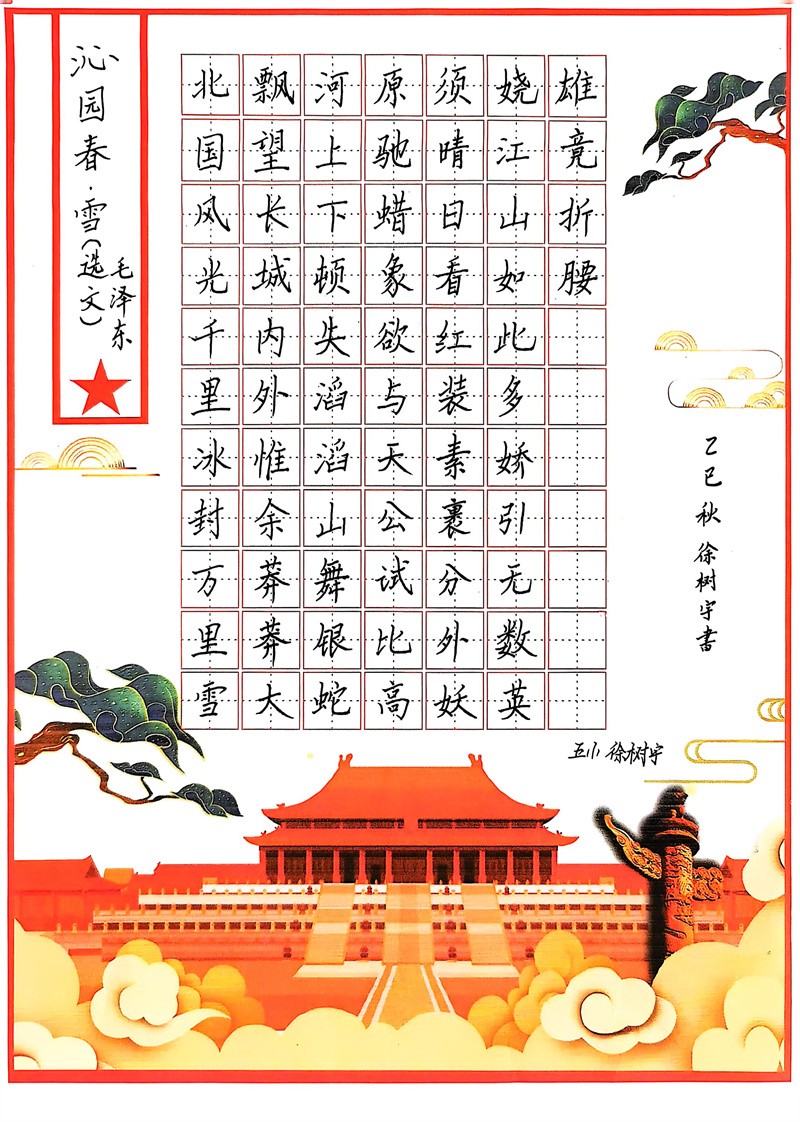 沁园春·雪(选文)
毛泽东
北国风光千里冰封万里雪
飘望长城内外惟余莽莽大
河上下顿失滔滔山舞银蛇
原驰蜡象欲与天公试比高
须晴日看红装素裹分外妖
娆江山如此多娇引无数英
雄竟折腰
乙巳秋徐树宇書
五小 徐树宇